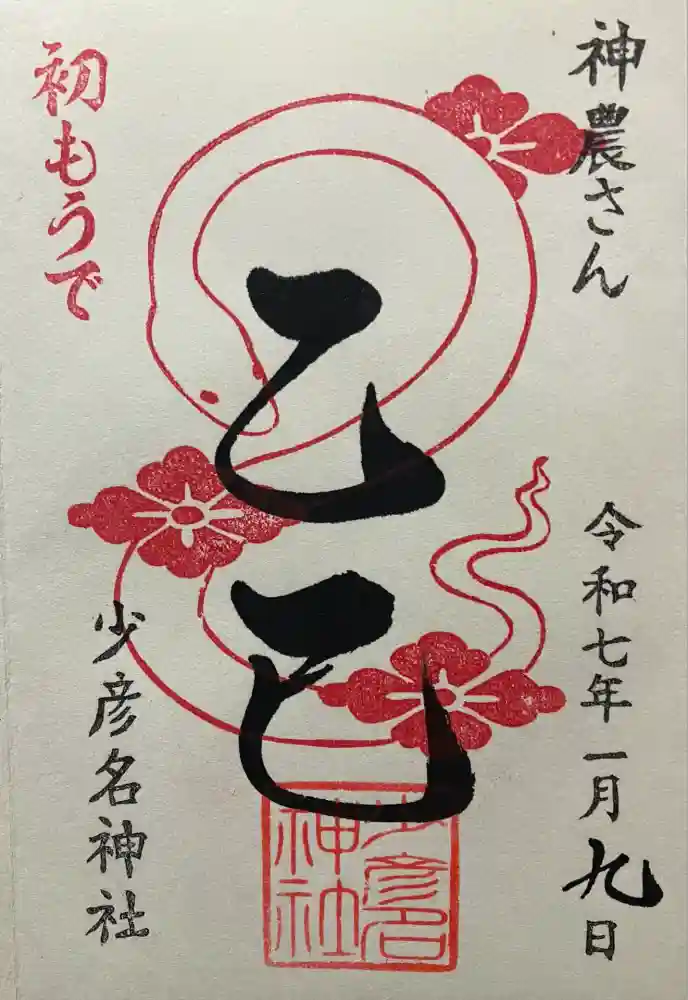 神農さん
令和七年一月九日
乙巳
初もうで
少彦名神社
少彦名
神社